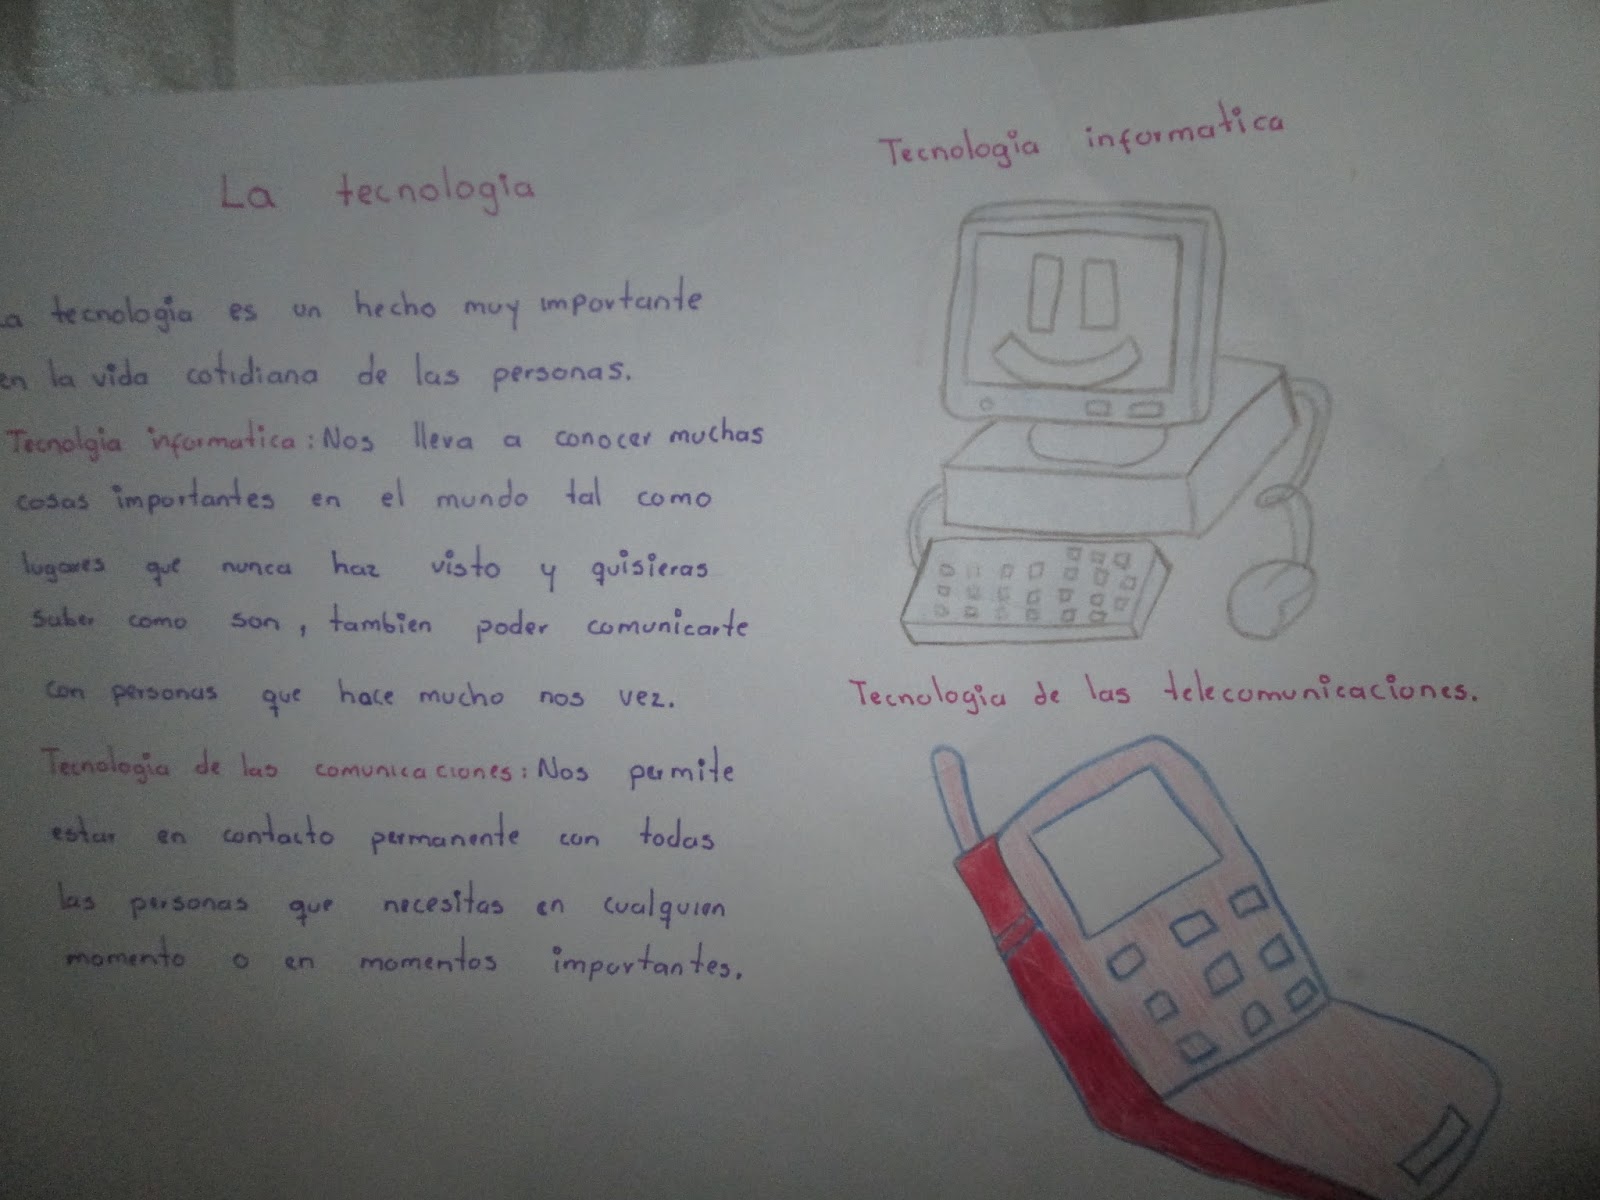 La tecnologia
La tecnologia es un hecho muy importante
en la vida cotidiana de las personas.
Tecnolgia informatica: Nos lleva a conocer muchas
cosas importantes en el mundo tal como
lugares que nunca haz visto y quisieras
saber como son, tambien poder comunicarte
con personas que hace mucho nos vez.
Tecnologia de las comunicaciones: Nos permite
estar en contacto permanente con todas
las personas que necesitas en cualquien
momento o en momentos importantes.
Tecnologia informatica
Tecnologia de las telecomunicaciones.